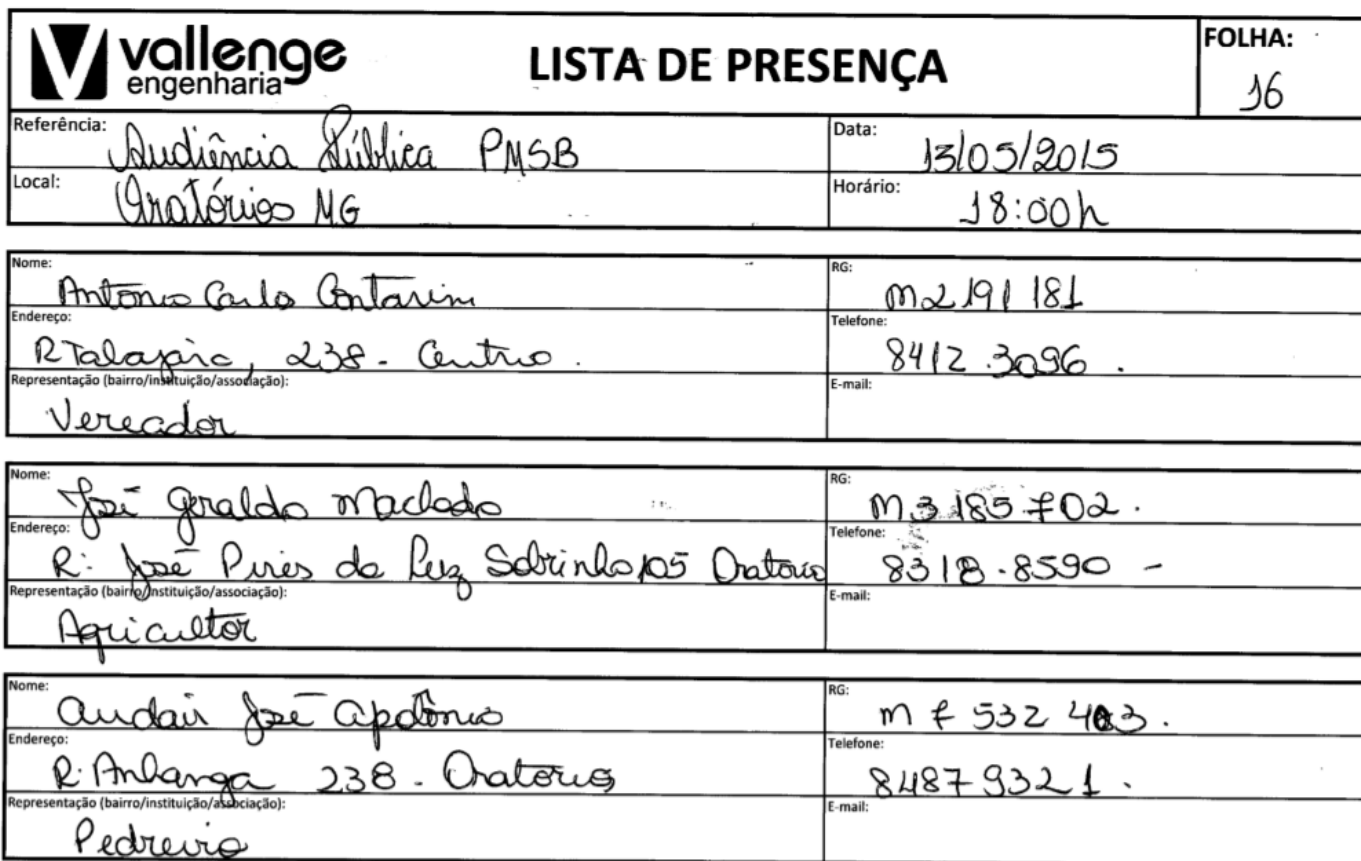 vallenge
engenharia
LISTA DE PRESENÇA
FOLHA:
16
Referência: Audiência Pública PMSB
Data: 13/05/2015
Local: Oratórios MG
Horário: 18:00h
Nome: Antonio Carlo Contarini
RG: M2191181
Endereço: R 238 - Centro.
Telefone: 8412 3096.
Representação (bairro/instituição/associação): Vereador
E-mail:
Nome: José Geraldo Machado
RG: M3.185.702.
Endereço: R: José Pires da Luz Sobrinho 105 Oratorio
Telefone: 8318.8590 -
Representação (bairro/instituição/associação): Agricultor
E-mail:
Nome: Audair José Apolônio
RG: M 7 532
Endereço: R: 238 - Oratorios
Telefone: 84879321.
Representação (bairro/instituição/associação): Pedreiro
E-mail: